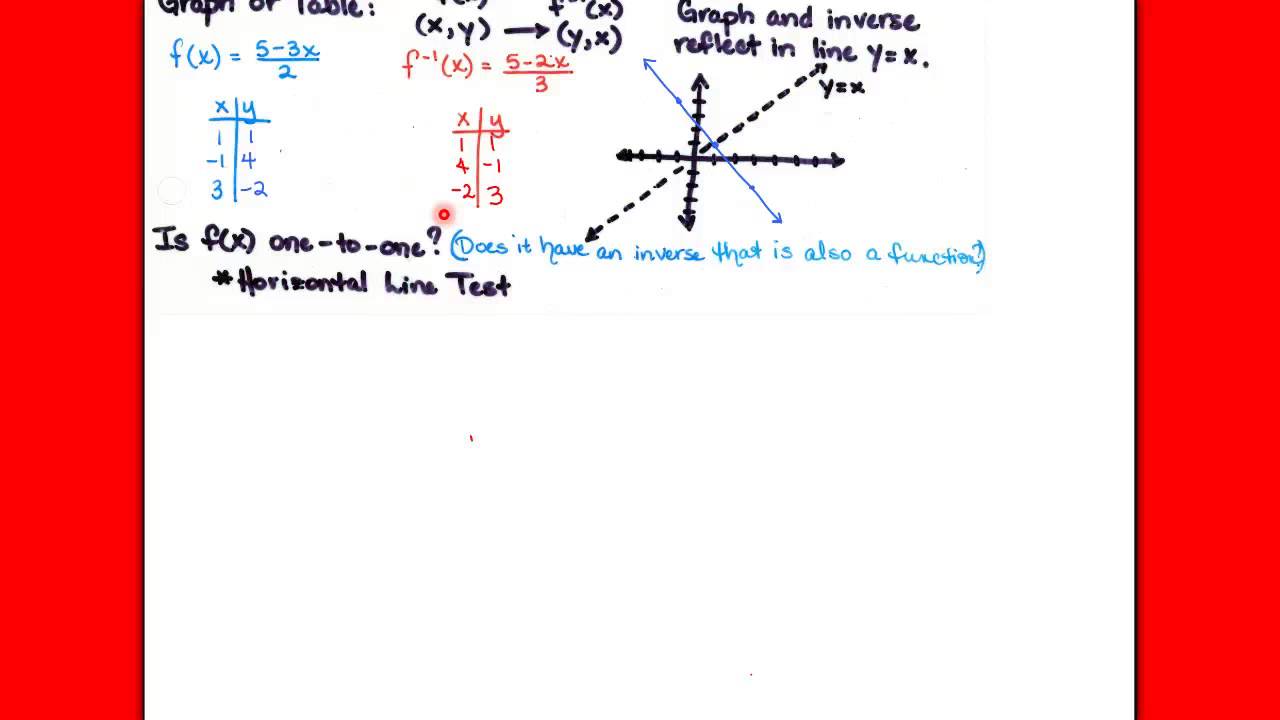 Graph or Table:
(x)
(x,y) → (y,x)
Graph and inverse
reflect in line y=x.
f(x) = 5-3x/2
f⁻¹(x) = 5-2x/3
y=x
x y
1 1
-1 4
3 -2
x y
1 1
4 -1
-2 3
Is f(x) one-to-one? (Does it have an inverse that is also a function?)
*Horizontal Line Test